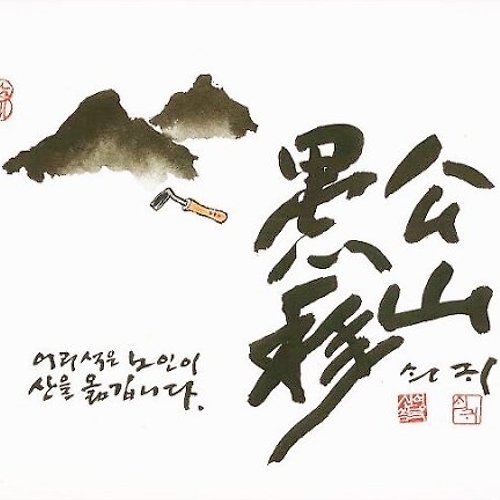 愚公
移山
쇠귀
어리석은 노인이
산을 옮깁니다.